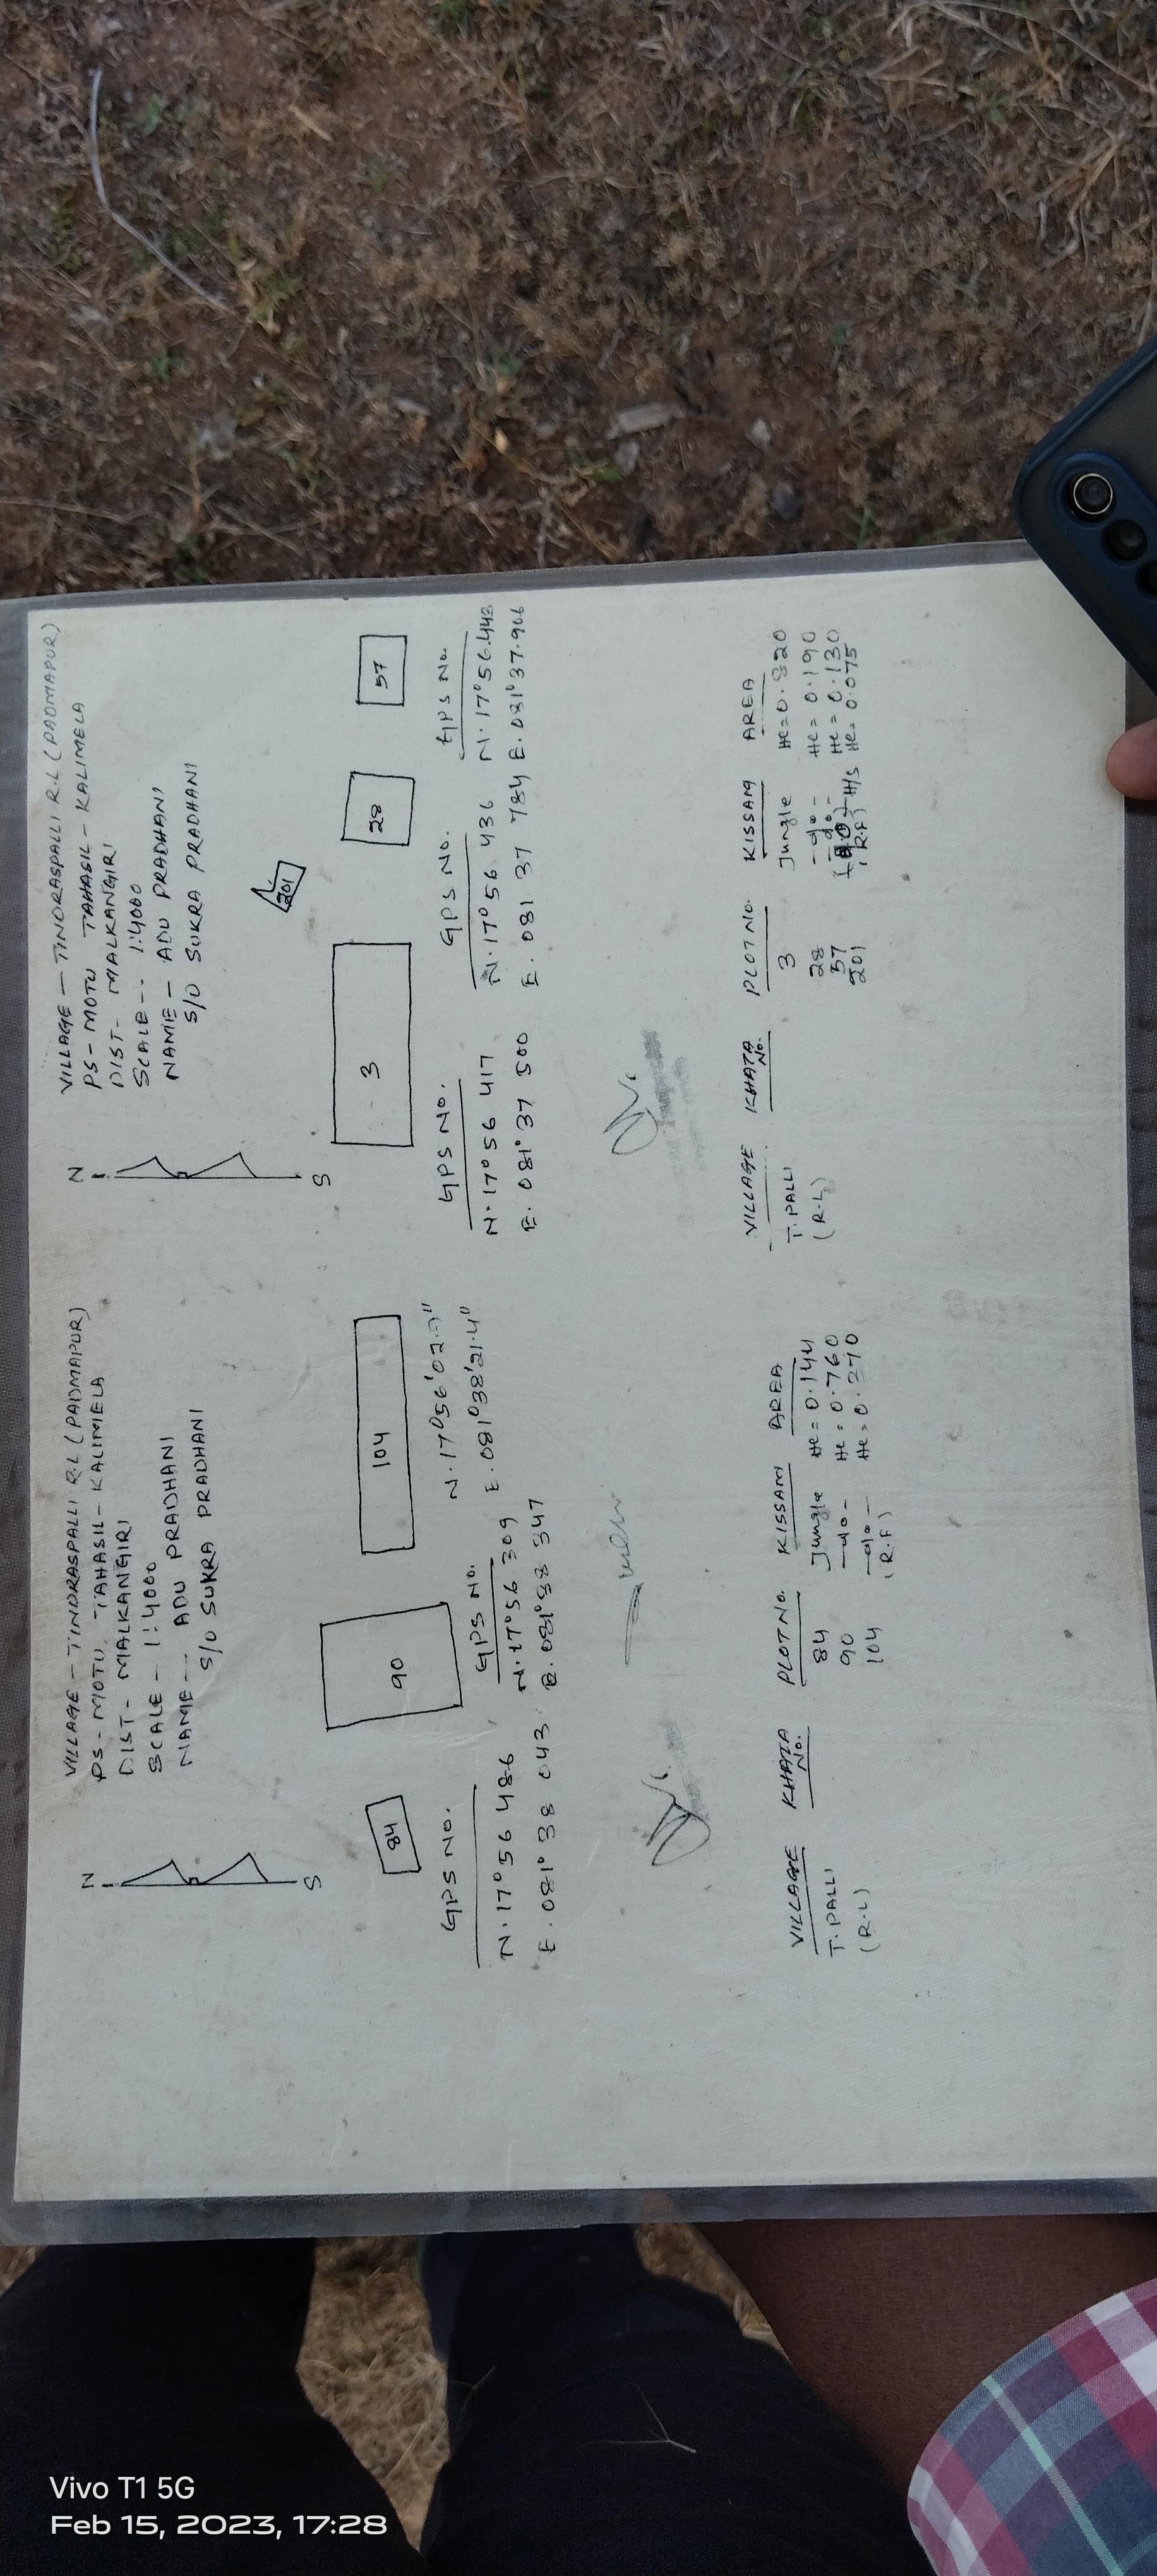 VILLAGE - TINDRASPALLI R.L (PADMAPUR)
PS - MOTU TAHASIL - KALIMELA
DIST - MALKANGIRI
SCALE - 1:4000
NAME - ADU PRADHANI
S/O SUKRA PRADHANI
N
S
84
90
104
GPS NO.
N.17°56 486
E.081°38 043
GPS NO.
N.17°56 309
E.081°38 347
N.17°56'02.9"
E.081°38'21.4"
VILLAGE KHATA NO. PLOT NO. KISSAM AREA
T.PALLI 84 Jungle He = 0.144
(R.L) 90 -do- He = 0.760
104 -do- He = 0.270
(R.F)
VILLAGE - TINDRASPALLI R.L (PADMAPUR)
PS - MOTU TAHASIL - KALIMELA
DIST - MALKANGIRI
SCALE - 1:4000
NAME - ADU PRADHANI
S/O SUKRA PRADHANI
N
S
201
3
28
57
GPS NO.
N.17°56 417
E.081°37 500
GPS NO.
N.17°56 436
E.081 37 784
GPS NO.
N.17°56.443
E.081°37.906
VILLAGE KHATA NO. PLOT NO. KISSAM AREA
T.PALLI 3 Jungle He = 0.820
(R.L) 28 -do- He = 0.190
57 -do- He = 0.130
201 H/S He = 0.075
(R.F)
Vivo T1 5G
Feb 15, 2023, 17:28